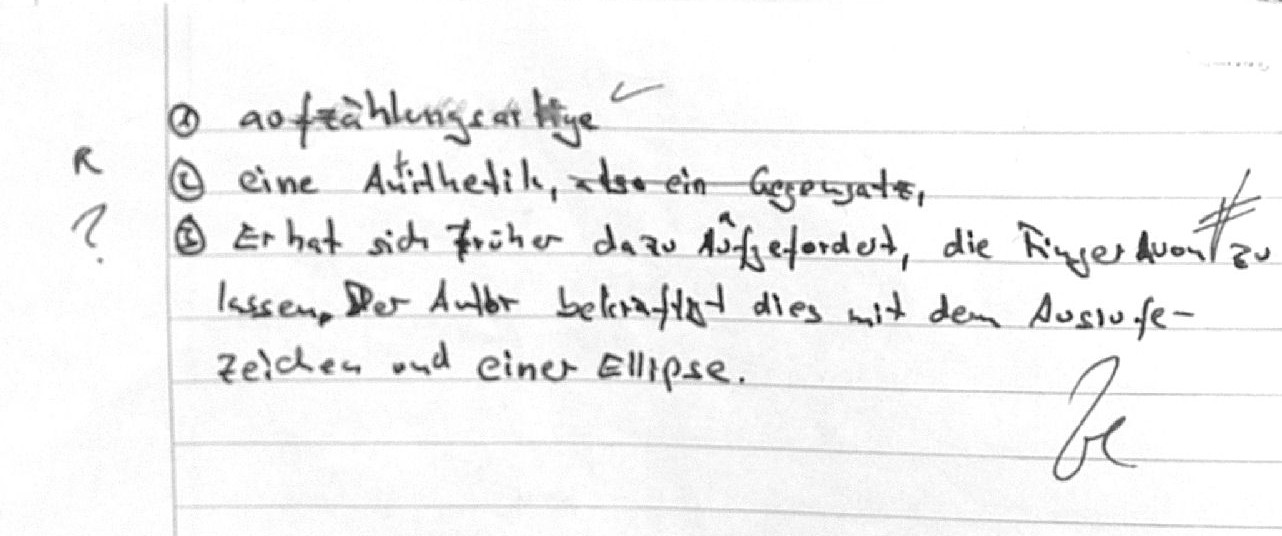 ① aufzählungsartige ✓
R ② eine Antithetik, also ein Gegensatz,
? ③ Er hat sich früher dazu aufgefordert, die Finger davon zu
lassen. Der Autor bekräftigt dies mit dem Ausrufe-
zeichen und einer Ellipse.